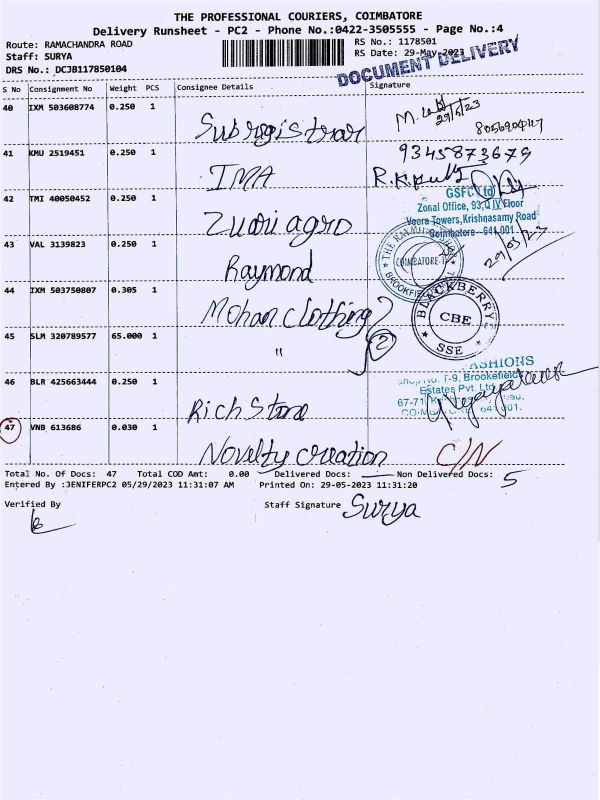 THE PROFESSIONAL COURIERS, COIMBATORE
Delivery Runsheet - PC2 - Phone No.:0422-3505555 - Page No.:4
Route: RAMACHANDRA ROAD
Staff: SURYA
DRS No.: DCJB117850104
RS No.: 1178501
RS Date: 29-May-2023
DOCUMENT DELIVERY
S No Consignment No Weight PCS Consignee Details Signature
40 IXM 503608774 0.250 1 Subregistrar
29/5/23
8056904117
41 KMU 2519451 0.250 1 IMA
9345873679
42 TMI 40050452 0.250 1 Zuari agro
GSFC Ltd
Zonal Office, 93, Q IV Floor
Veera Towers, Krishnasamy Road
Coimbatore - 641 001.
29/05/23
43 VAL 3139823 0.250 1 Raymond
COIMBATORE
44 IXM 503750807 0.305 1 Mohan clothing
BLACKBERRY
CBE
SSE
45 SLM 320789577 65.000 1 "
2
46 BLR 425663444 0.250 1 Rich Stone
F-9, Brookefield
Estates Pvt. Ltd.
67-71
47 VNB 613686 0.030 1 Novelty creation C/N
Total No. Of Docs: 47 Total COD Amt: 0.00 Delivered Docs: Non Delivered Docs: 5
Entered By :JENIFERPC2 05/29/2023 11:31:07 AM Printed On: 29-05-2023 11:31:20
Verified By
Staff Signature Surya